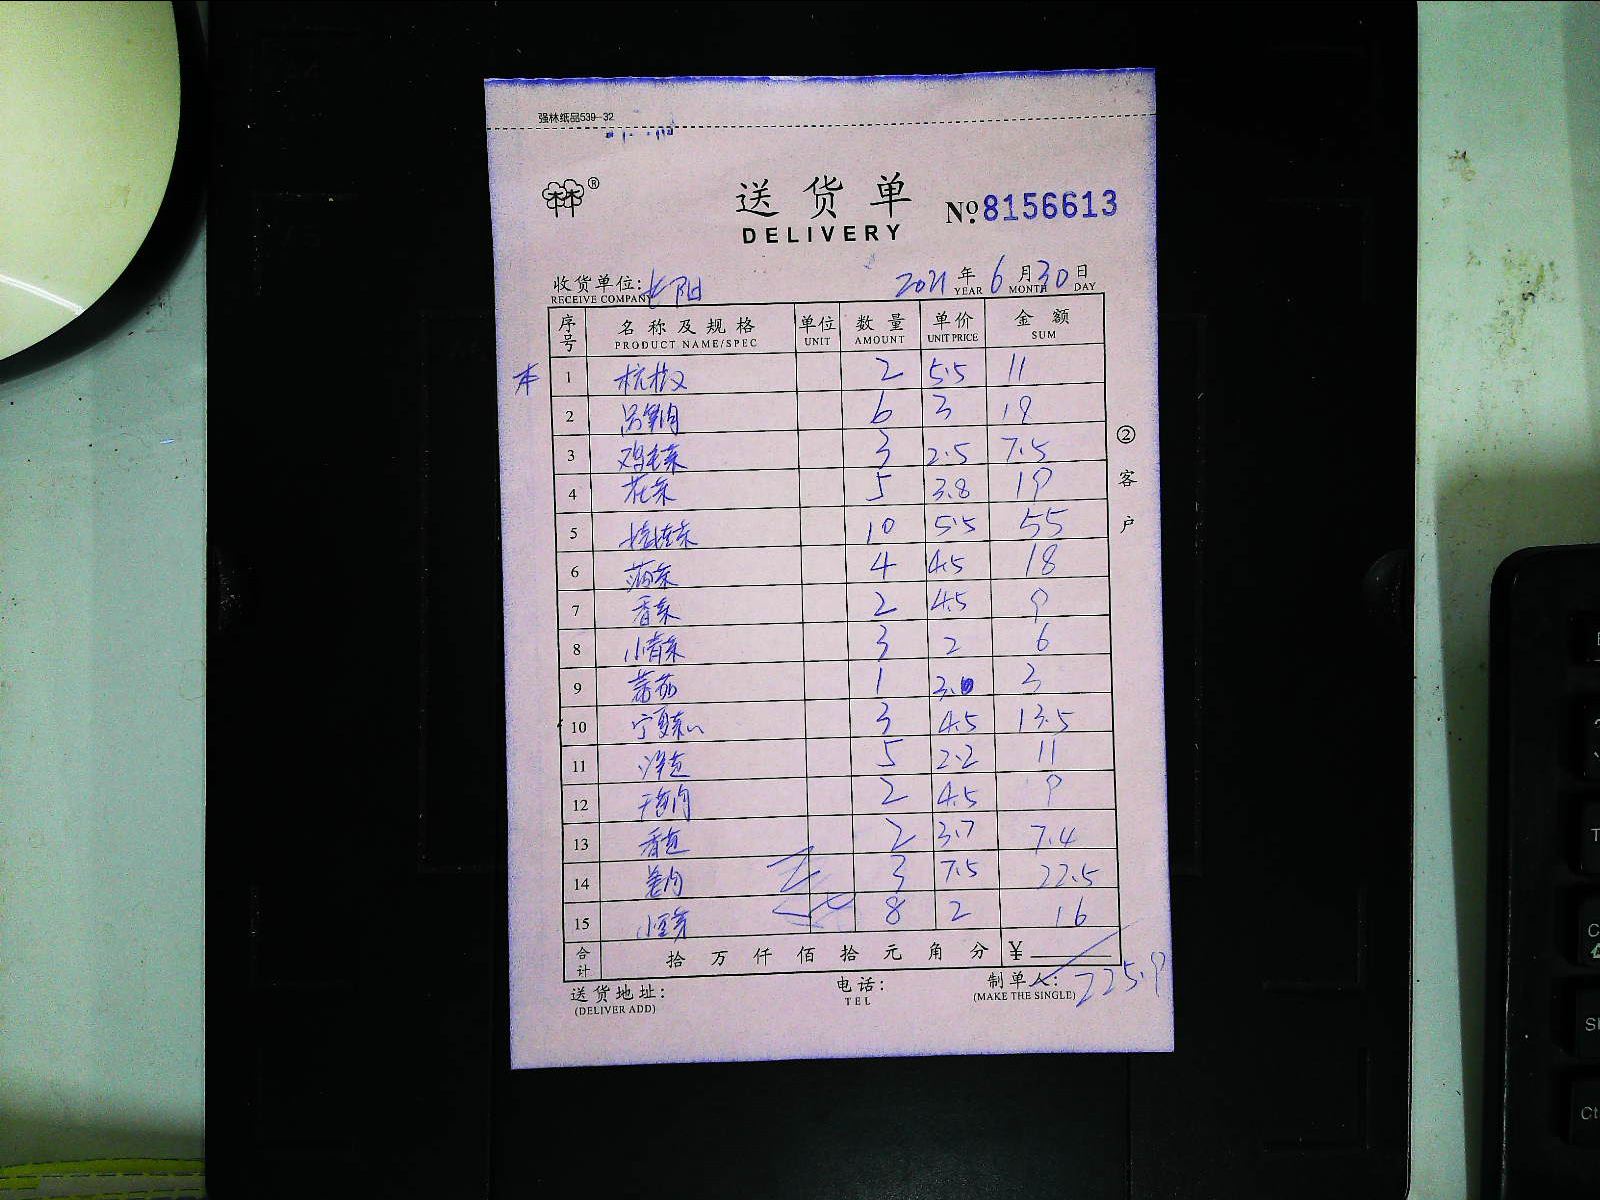 强林纸品539-32
林®
送货单 №8156613
DELIVERY
收货单位: 2021年6月30日
RECEIVE COMPANY YEAR MONTH DAY
序号 名称及规格 单位 数量 单价 金额
PRODUCT NAME/SPEC UNIT AMOUNT UNIT PRICE SUM
1 杭椒 2 5.5 11
2 6 3 18
3 鸡毛菜 3 2.5 7.5
4 花菜 5 3.8 19
5 10 5.5 55
6 4 4.5 18
7 香菜 2 4.5 9
8 小青菜 3 2 6
9 番茄 1 3.0 3
10 宁夏菜心 3 4.5 13.5
11 洋芋 5 2.2 11
12 2 4.5 9
13 香芹 2 3.7 7.4
14 姜肉 3 7.5 22.5
15 小豆芽 8 2 16
合计 拾万仟佰拾元角分 ¥
225.9
送货地址: 电话: 制单人:
(DELIVER ADD) TEL (MAKE THE SINGLE)
②客户